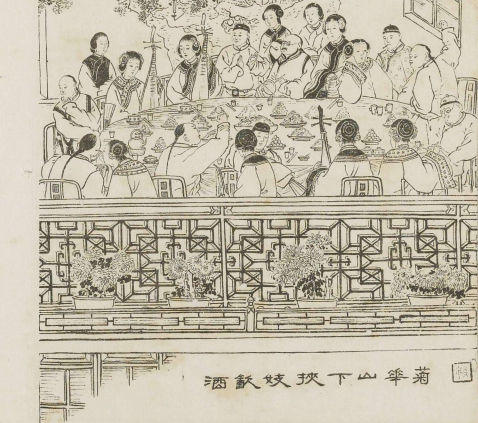 菊華山下挾妓飲酒